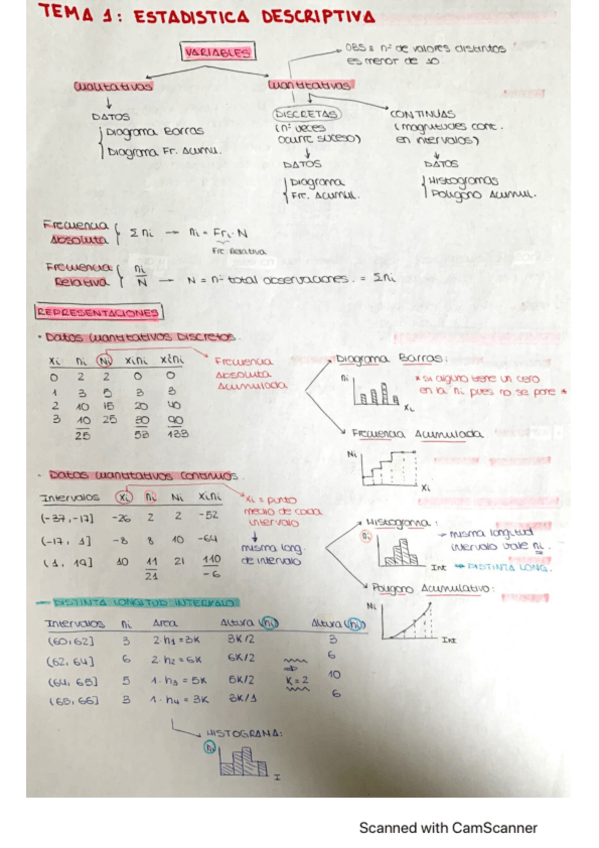 TEMA 1: ESTADISTICA DESCRIPTIVA
VARIABLES
OBS: nº de valores distintos
es menor de 10
Cualitativos
Cuantitativos
DATOS
Diagrama Barras
Diagrama Fr. Acumu.
DISCRETAS
(nº veces
ocurre suceso)
DATOS
Diagrama
Fre. Acumul.
CONTINUAS
(magnitudes cont.
en intervalos)
DATOS
Histogramas
Poligono Acumul.
Frecuencia
Absoluta
Σni → ni = Fri · N
Fre Relativa
Frecuencia
Relativa
ni/N → N = nº total observaciones = Σni
REPRESENTACIONES
· Datos Cuantitativos Discretos.
xi ni Ni xini xi²ni
0 2 2 0 0
1 3 5 3 3
2 10 15 20 40
3 10 25 30 90
25 53 133
Frecuencia
Absoluta
Acumulada
Diagrama Barras:
ni
xi
* Si alguno tiene un cero
en la ni pues no se pone *
Frecuencia Acumulada
Ni
xi
· Datos Cuantitativos Continuos.
Intervalos xi ni Ni xini
(-37,-17] -26 2 2 -52
(-17, 1] -8 8 10 -64
(1, 19] 10 11 21 110
21 -6
xi = punto
medio de cada
intervalo
misma long.
de intervalo
Histograma:
ni
Int
→ misma longitud
intervalo vale ni.
→ DISTINTA LONG.
Poligono Acumulativo:
Ni
Int
→ DISTINTA LONGITUD INTERVALO
Intervalos ni Area Altura (hi) Altura (hi)
(60,62] 3 2·h1 = 3K 3K/2 3
(62,64] 6 2·h2 = 6K 6K/2 6
(64,65] 5 1·h3 = 5K 5K/1 K=2 10
(65,66] 3 1·h4 = 3K 3K/1 6
HISTOGRAMA:
hi
I
Scanned with CamScanner